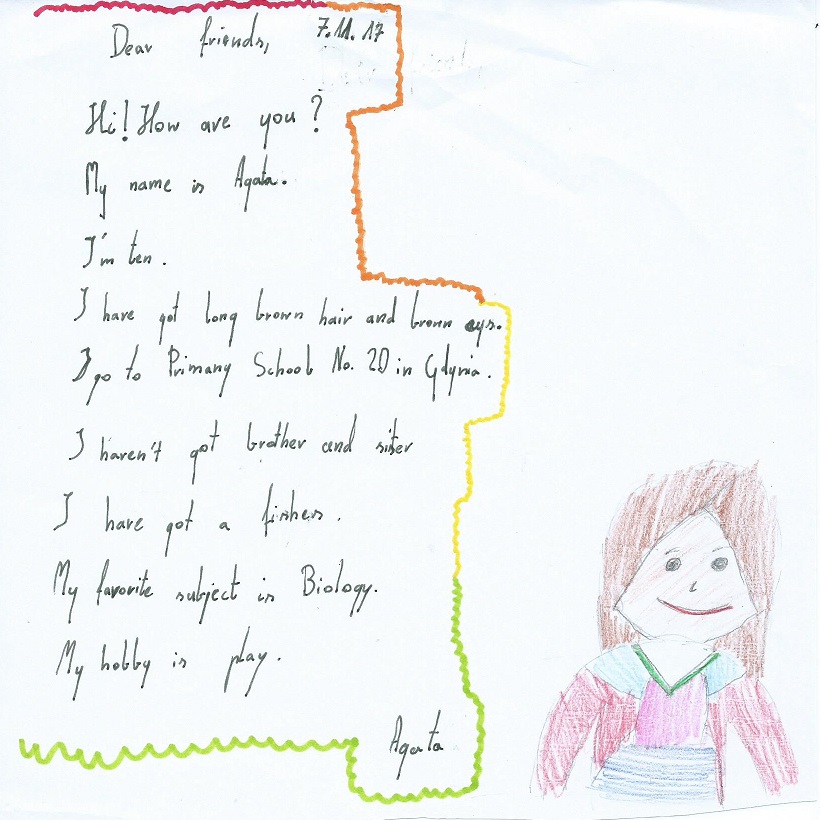 7.11.17
Dear friends,
Hi! How are you?
My name is Agata.
I'm ten.
I have got long brown hair and brown eys.
I go to Primary School No. 20 in Gdynia.
I haven't got brother and sister
I have got a fishes.
My favorite subject is Biology.
My hobby is play.
Agata